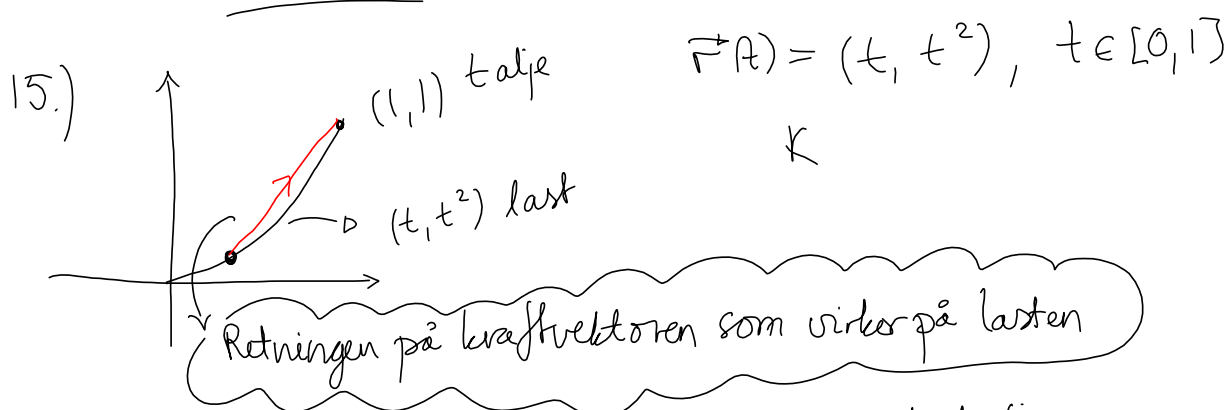 15.)
(1,1) talje
r⃗(t) = (t, t²), t ∈ [0,1]
K
(t, t²) last
Retningen på kraftvektoren som virker på lasten